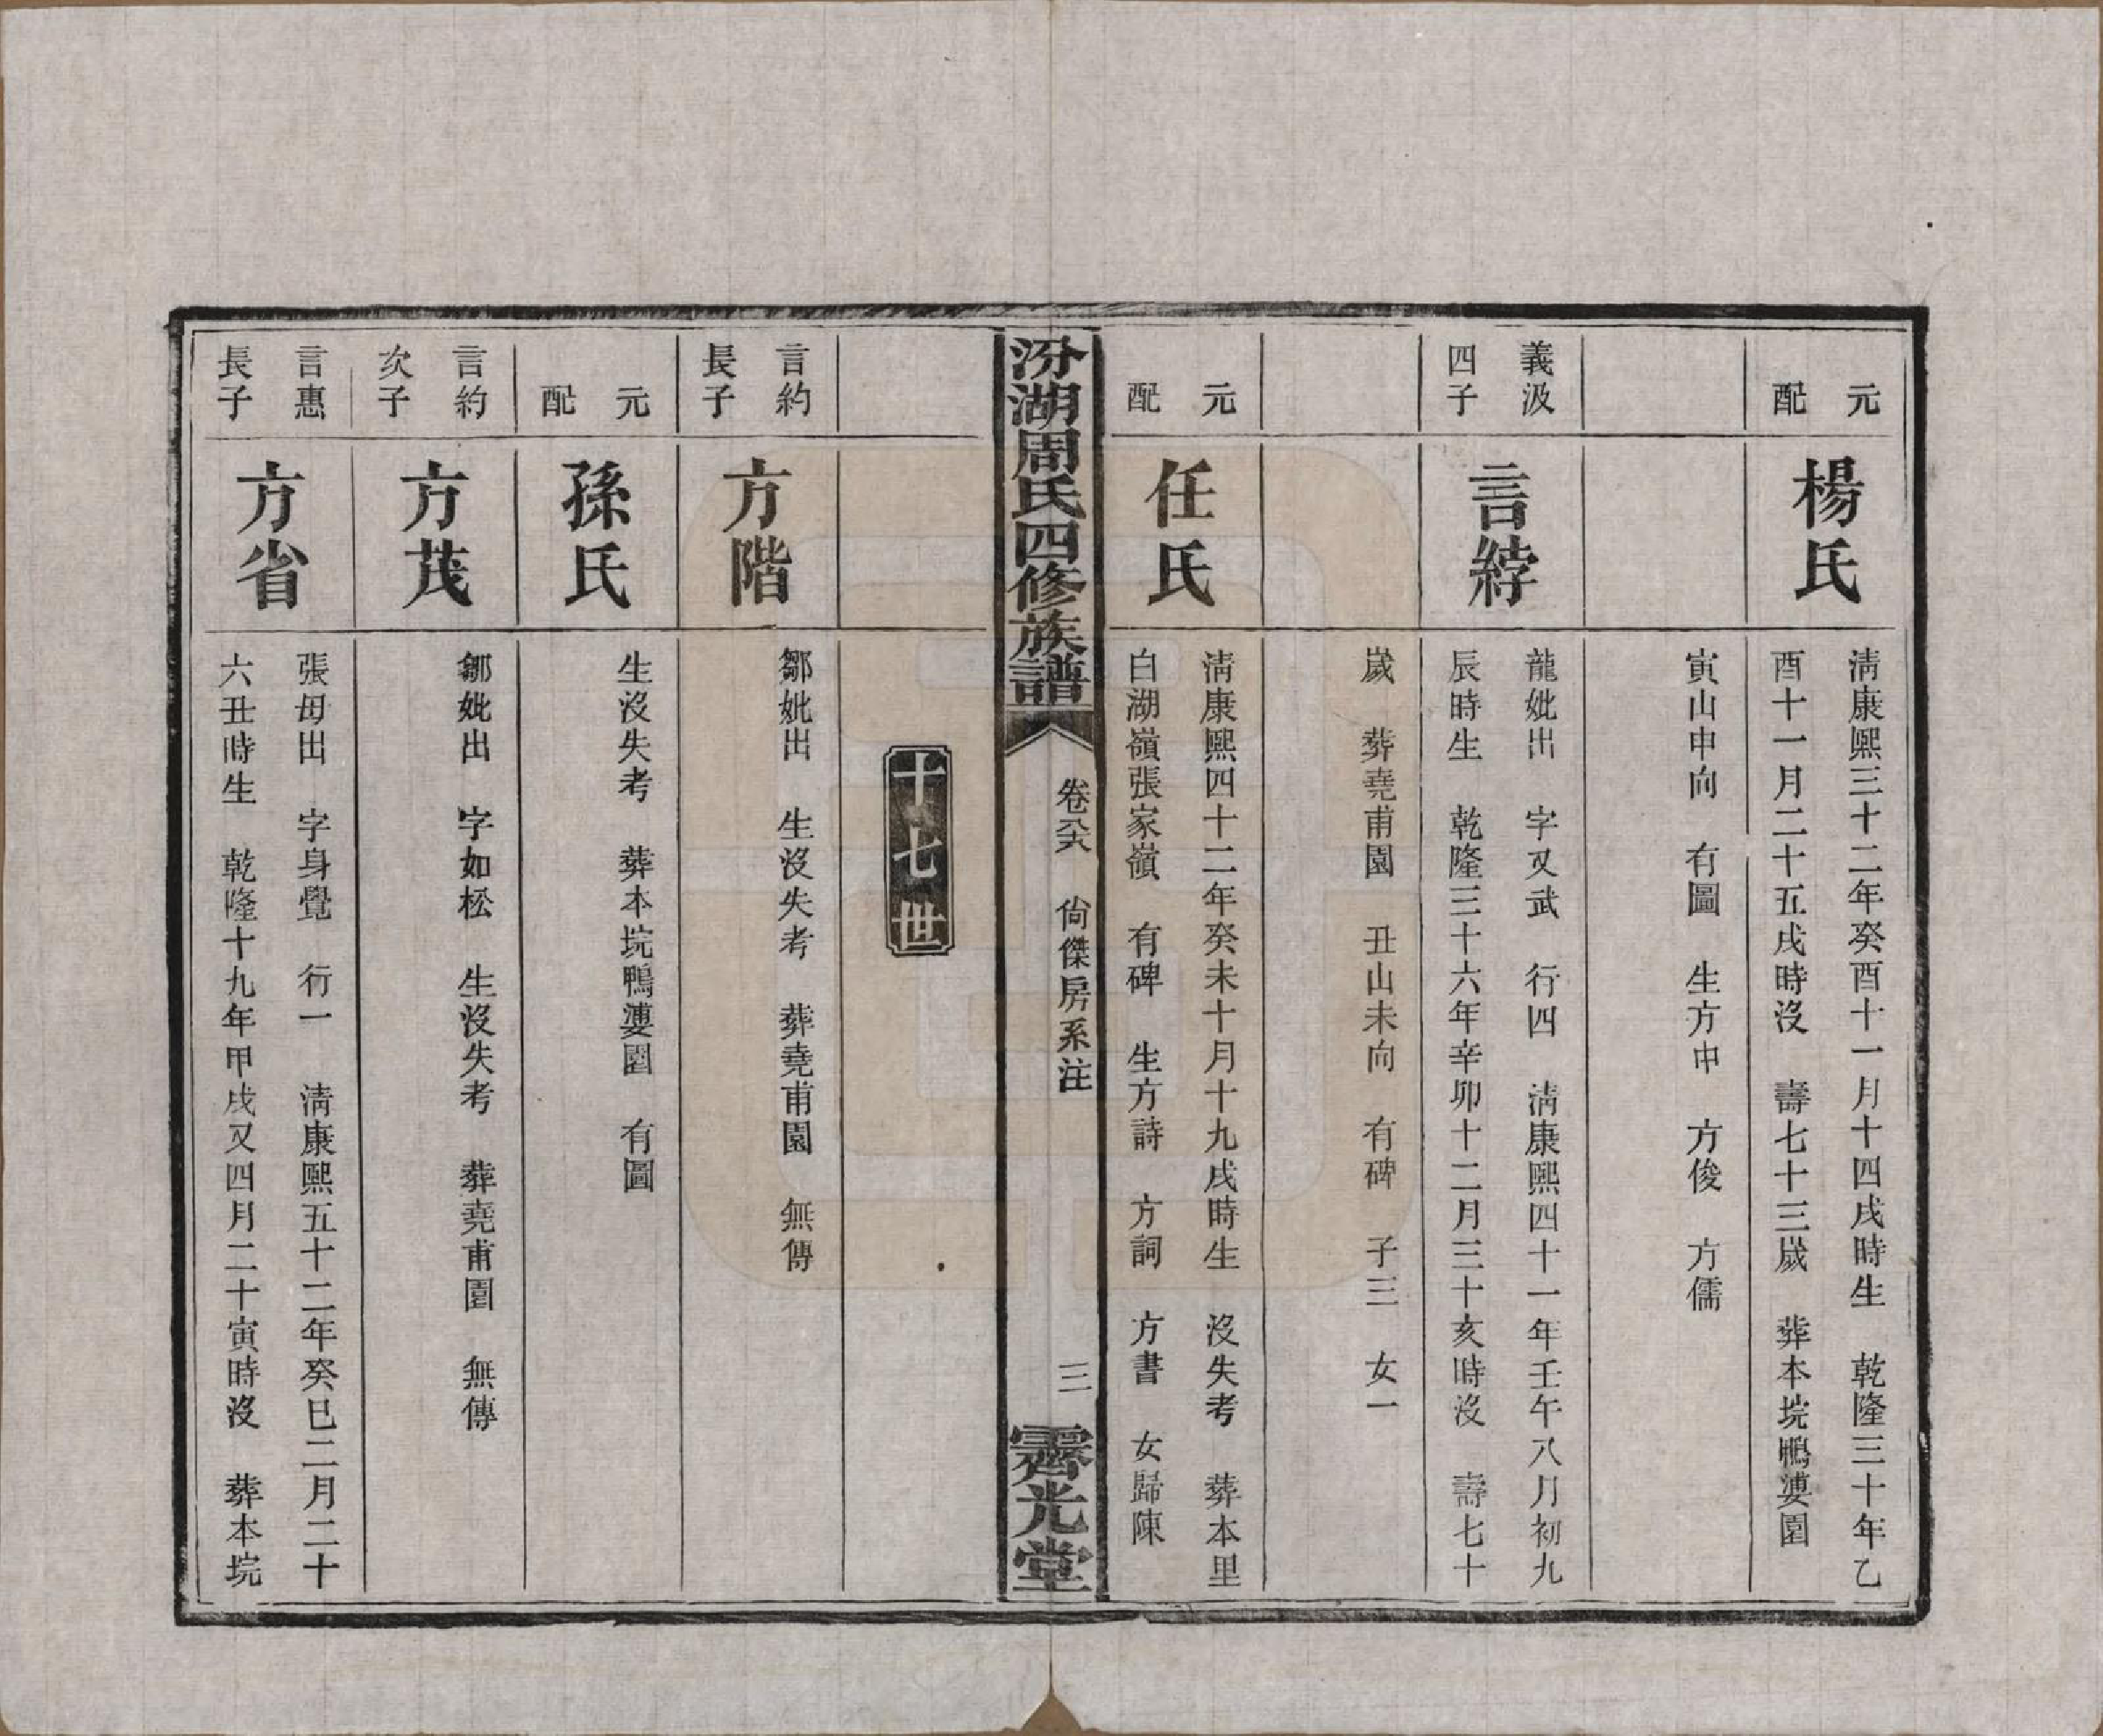 元
配
楊氏
淸康熙三十二年癸酉十一月十四戌時生　乾隆三十年乙
酉十一月二十五戌時沒　壽七十三歲　葬本垸鴨婆園
寅山申向　有圖　生方中　方俊　方儒
義汲
四子
言綍
龍妣出　字又武　行四　淸康熙四十一年壬午八月初九
辰時生　乾隆三十六年辛卯十二月三十亥時沒　壽七十
歲　葬堯甫園　丑山未向　有碑　子三　女一
元
配
任氏
淸康熙四十二年癸未十月十九戌時生　沒失考　葬本里
白湖嶺張家嶺　有碑　生方詩　方詞　方書　女歸陳
汾湖周氏四修族譜
卷六　尙傑房系注
三
霽光堂
十七世
言約
長子
方階
鄒妣出　生沒失考　葬堯甫園　無傳
元
配
孫氏
生沒失考　葬本垸鴨婆園　有圖
言約
次子
方茂
鄒妣出　字如松　生沒失考　葬堯甫園　無傳
言惠
長子
方省
張母出　字身覺　行一　淸康熙五十二年癸巳二月二十
六丑時生　乾隆十九年甲戌又四月二十寅時沒　葬本垸